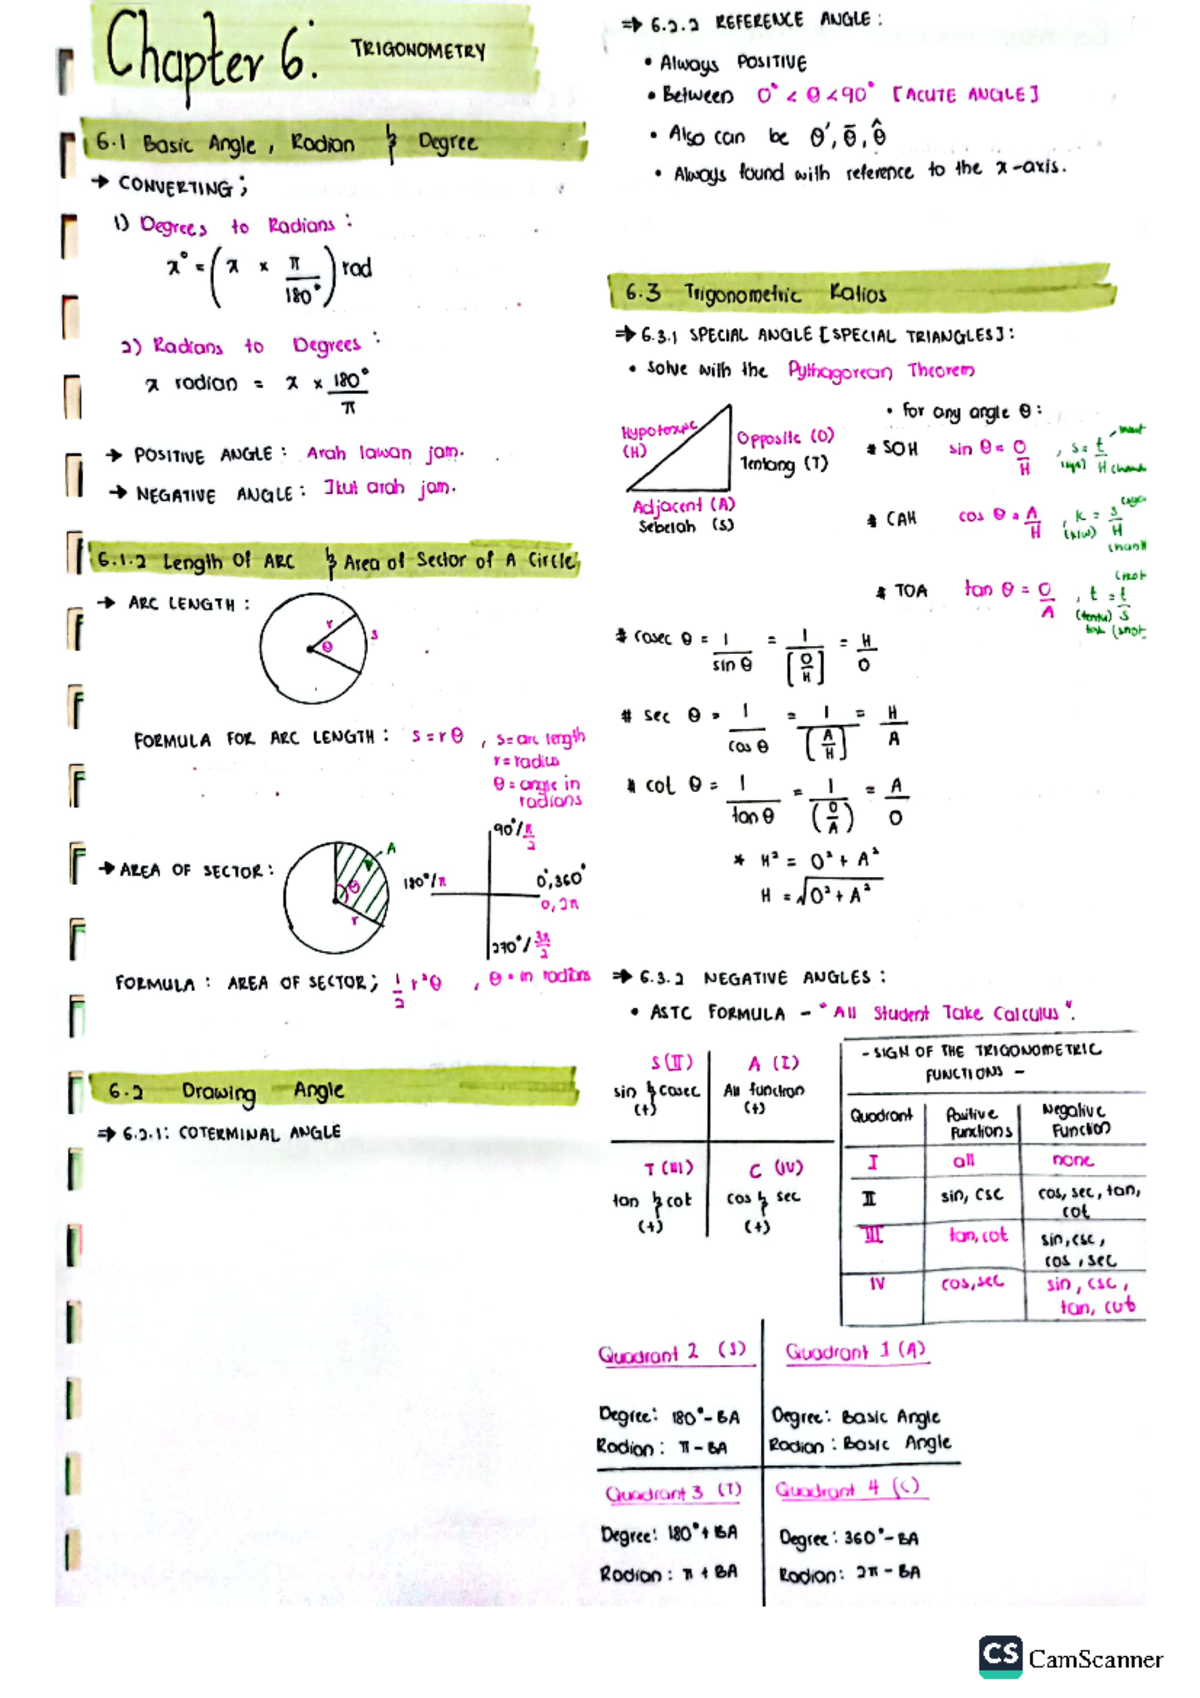 Chapter 6: TRIGONOMETRY
6.1 Basic Angle, Radian & Degree
→ CONVERTING;
1) Degrees to Radians:
x° = (x × π/180°) rad
2) Radians to Degrees:
x radian = x × 180°/π
→ POSITIVE ANGLE: Arah lawan jam.
→ NEGATIVE ANGLE: Ikut arah jam.
6.1.2 Length Of ARC & Area of Sector of A Circle
→ ARC LENGTH:
r
θ
s
FORMULA FOR ARC LENGTH: s = rθ, s = arc length
r = radius
θ = angle in
radians
→ AREA OF SECTOR:
A
θ
r
90°/π/2
180°/π
0°, 360°
0, 2π
270°/3π/2
FORMULA: AREA OF SECTOR; 1/2 r²θ, θ = in radians
6.2 Drawing Angle
⇒ 6.2.1: COTERMINAL ANGLE
⇒ 6.2.2 REFERENCE ANGLE:
• Always POSITIVE
• Between 0° < θ < 90° [ACUTE ANGLE]
• Also can be θ', θ̄, θ̂
• Always found with reference to the x-axis.
6.3 Trigonometric Ratios
⇒ 6.3.1 SPECIAL ANGLE [SPECIAL TRIANGLES]:
• Solve with the Pythagorean Theorem
Hypotenuse
(H)
Opposite (O)
Tentang (T)
Adjacent (A)
Sebelah (S)
• For any angle θ:
# SOH sin θ = O/H, s = t/H
# CAH cos θ = A/H, k = s/H
# TOA tan θ = O/A, t = t/s
# cosec θ = 1/sin θ = 1/[O/H] = H/O
# sec θ = 1/cos θ = 1/[A/H] = H/A
# cot θ = 1/tan θ = 1/(O/A) = A/O
* H² = O² + A²
H = √O² + A²
⇒ 6.3.2 NEGATIVE ANGLES:
• ASTC FORMULA - "All Student Take Calculus".
S (II) A (I)
sin & cosec All function
(+) (+)
T (III) C (IV)
tan & cot cos & sec
(+) (+)
- SIGN OF THE TRIGONOMETRIC
FUNCTIONS -
Quadrant Positive Functions Negative Function
I all none
II sin, csc cos, sec, tan, cot
III tan, cot sin, csc, cos, sec
IV cos, sec sin, csc, tan, cot
Quadrant 2 (S) Quadrant 1 (A)
Degree: 180° - BA Degree: Basic Angle
Radian: π - BA Radian: Basic Angle
Quadrant 3 (T) Quadrant 4 (C)
Degree: 180° + BA Degree: 360° - BA
Radian: π + BA Radian: 2π - BA
CS CamScanner